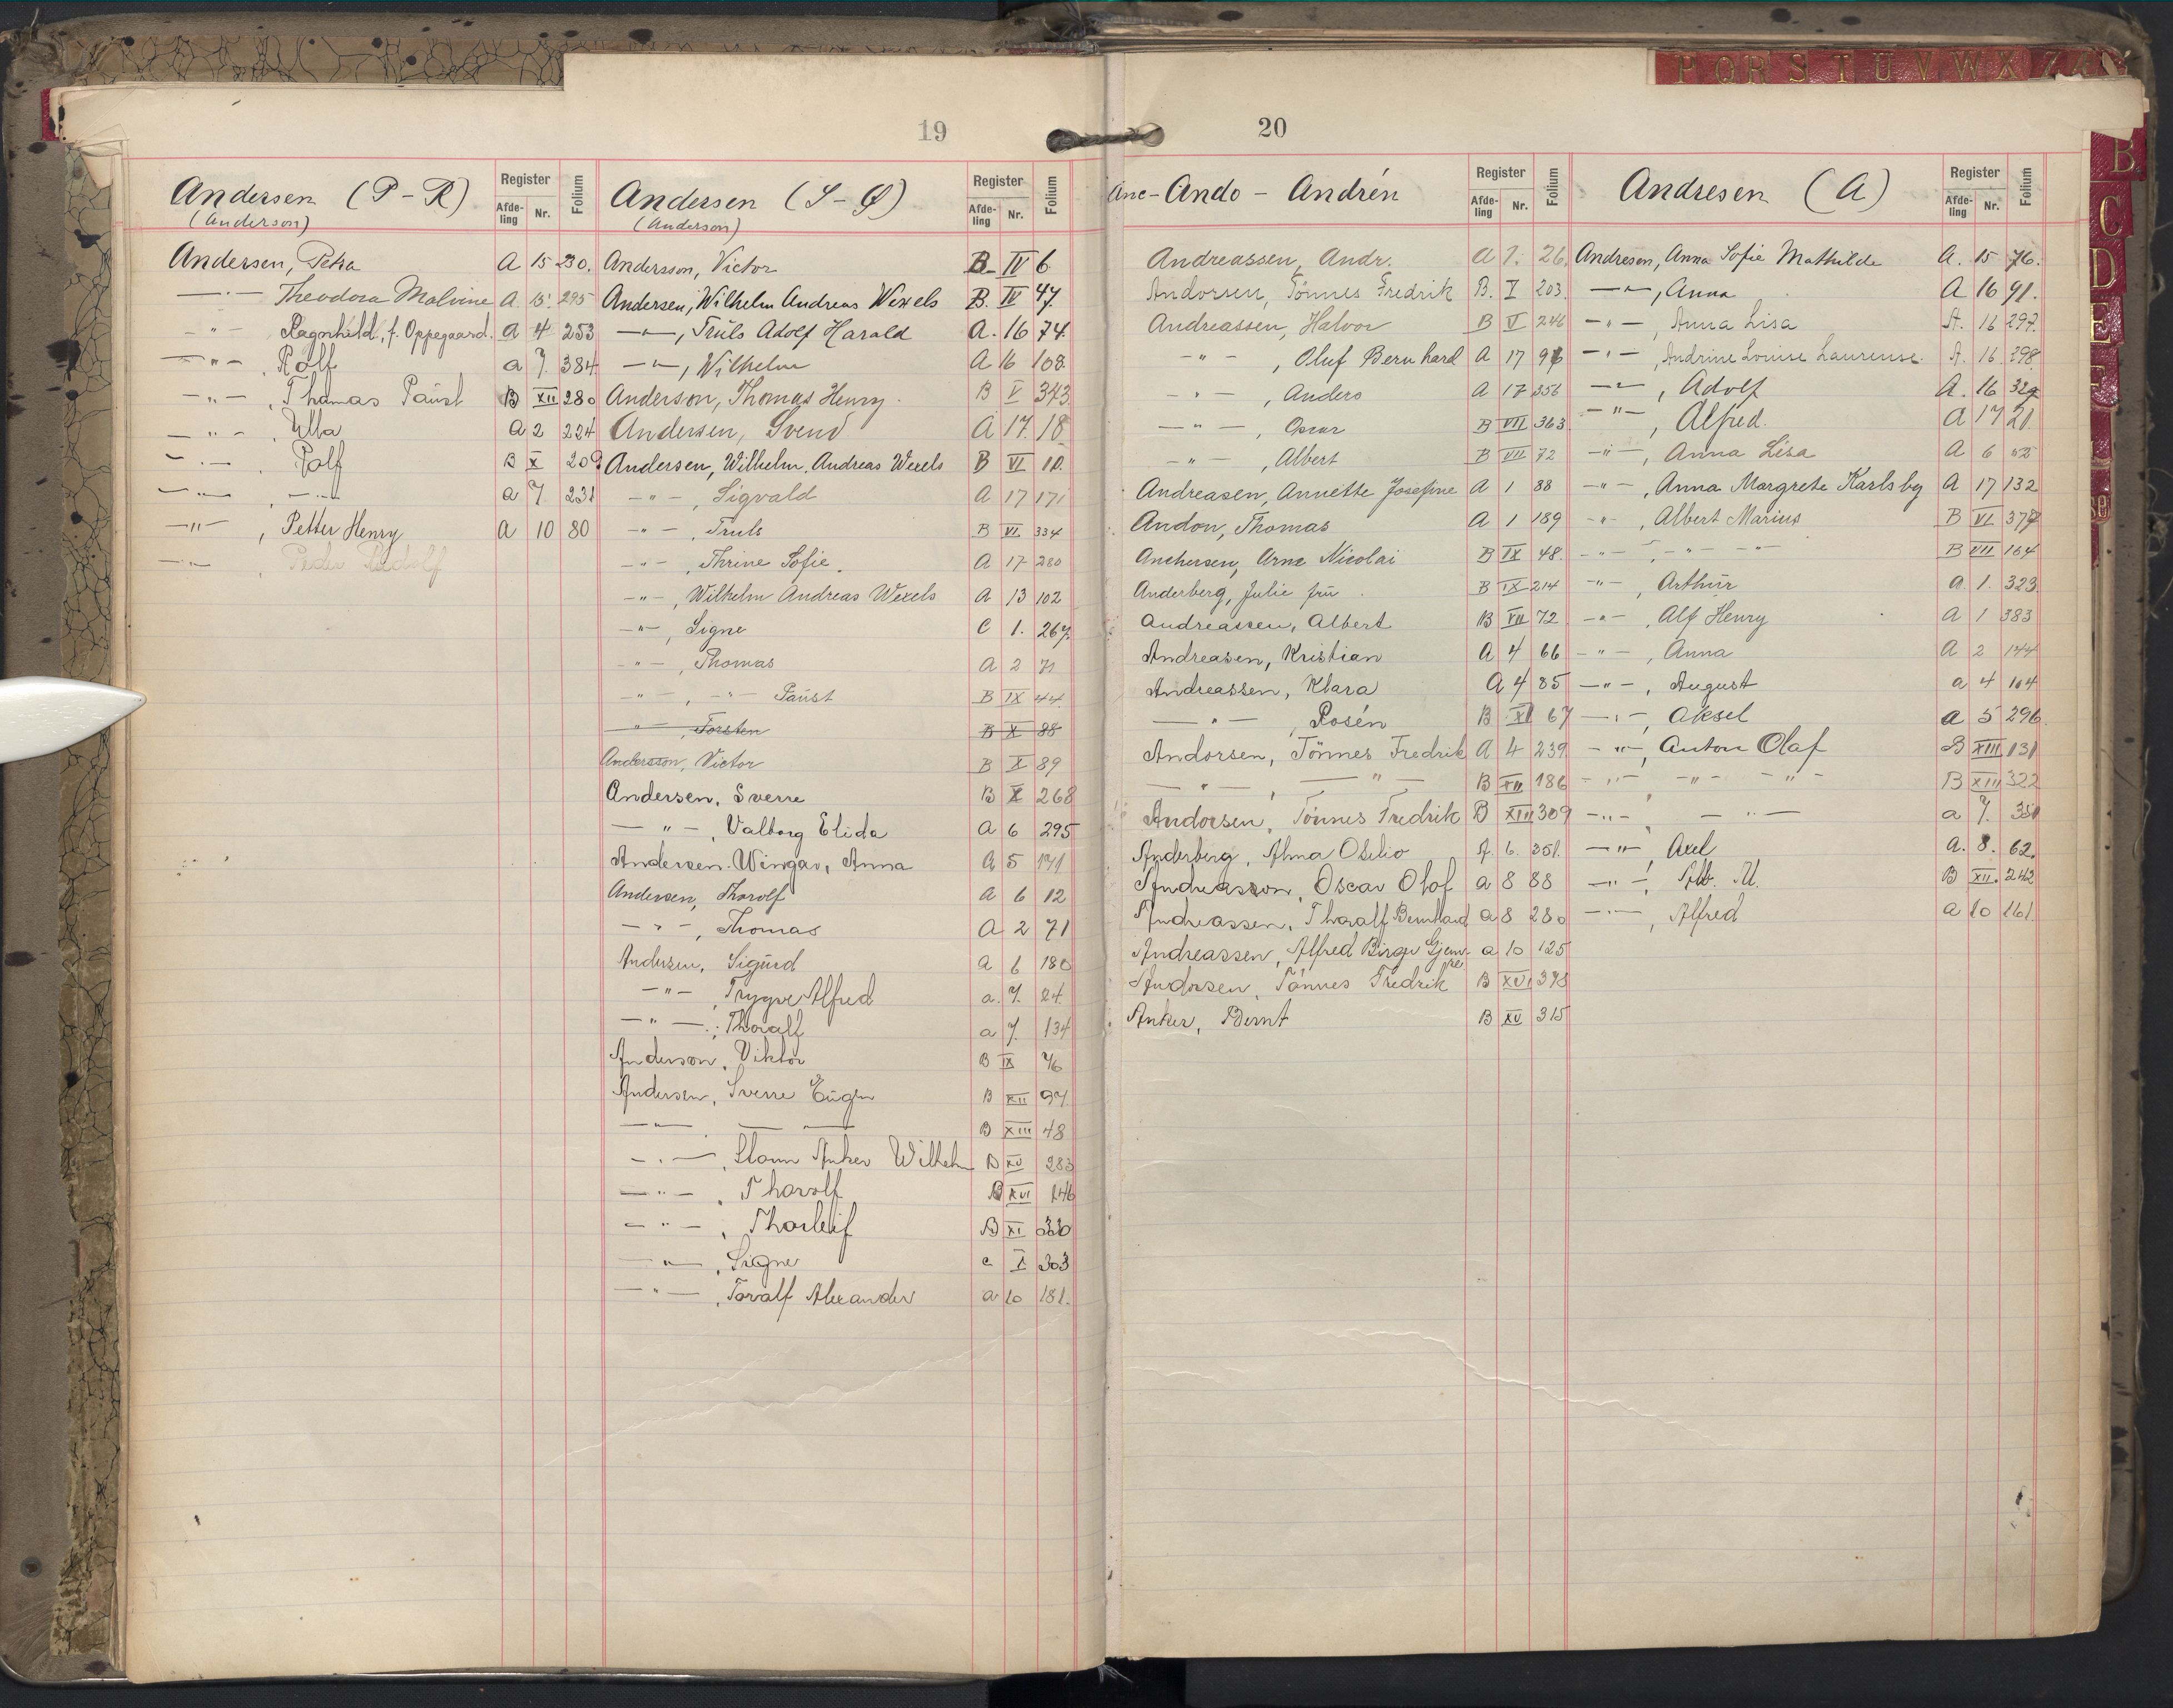 P Q R S T U V W X Z Æ
B
C
D
E
19
Andersen (P-R)
(Anderson)
Register
Afde-
ling
Nr.
Folium
Andersen, Petra A 15 230.
—"— Theodora Malvine A. 15. 295
—"— Ragnhild, f. Oppegaard. A 4 253
—"—, Rolf a 7. 384
—"—, Thomas Paust B XII 280
—"—, Ulla a 2 224
—"—, Rolf B X 209
—"—, —"— a 7. 231
—"—, Petter Henry A 10 80
—"—, Peder Rudolf
Andersen (S-Ø)
(Anderson)
Register
Afde-
ling
Nr.
Folium
Andersson, Victor B IV 6
Andersen, Wilhelm Andreas Wexels B. IV 47.
—"—, Truls Adolf Harald A. 16 74.
—"—, Wilhelm A 16 108.
Anderson, Thomas Henry. B V 343
Andersen, Svend A 17. 18
Andersen, Wilhelm Andreas Wexels B VI 10.
—"—, Sigvald A 17 171
—"—, Truls B VI 334
—"—, Thrine Sofie. A 17 280
—"—, Wilhelm Andreas Wexels A 13 102
—"—, Signe C 1. 267.
—"—, Thomas A 2 71
—"—, —"— Paust B IX 44
—"—, Torsten B X 88
Andersson, Victor B X 89
Andersen, Sverre B X 268
—"—, Valborg Elida A 6 295
Andersen-Wingar, Anna A 5 171
Andersen, Thorolf a 6 12
—"—, Thomas A 2 71
Andersen, Sigurd a 6 180
—"—, Trygve Alfred a. 7. 24.
—"—, Thoralf a 7. 134
Anderson, Viktor B IX 76
Andersen, Sverre Eugen B XII 97.
—"— —"— B XIII 48
—"—, Anker Wilhelm B XV 283
—"—, Thorolf B XVI 246
—"—, Thorleif B XI 330
—"—, Signe c I 303
—"—, Toralf Alexander a 10 181.
20
Anc-Ando - Andrén
Register
Afde-
ling
Nr.
Folium
Andreassen, Andr. a 7. 26.
Andorsen, Tönnes Fredrik B. V 203.
Andreassen, Halvor B V 246
—"—, Oluf Bernhard A 17 96
—"—, Anders A 17 356
—"—, Oscar B VII 363
—"—, Albert B VII 72
Andreasen, Annette Josefine A 1 88
Andon, Thomas A 1 189
Anchersen, Arne Nicolai B IX 48.
Anderberg, Julie frü. B IX 214
Andreassen, Albert B VII 72
Andreasen, Kristian A 4 66
Andreassen, Klara A 4 85
—"—, Rosén B XI 67
Andorsen, Tönnes Fredrik A 4 239
—"—, —"— B XII 186
Andorsen, Tönnes Fredrik B XIII 309
Anderberg, Alma Otilio A. 6. 251.
Andreasson, Oscar Olof a 8 88
Andreassen, Tharalf Bernhard a 8 280
Andreassen, Alfred Birger a 10 125
Andorsen, Tönnes Fredrik B XVI 398
Anker, Bernt B XV 315
Andresen (A)
Register
Afde-
ling
Nr.
Folium
Andresen, Anna Sofie Mathilde A. 15 76.
—"—, Anna A 16 91.
—"—, Anna Lisa A. 16 297.
—"—, Andrine Louise Laurense. A. 16 298
—"—, Adolf A. 16 329
—"—, Alfred. A 17 21
—"—, Anna Lisa A 6 52
—"—, Anna Margrete Karlsby A 17 132
—"—, Albert Marius B VI 377
—"—, —"— —"— B VII 164
—"—, Arthur a. 1. 323.
—"—, Alf Henry A 1 383
—"—, Anna A 2 144
—"—, August a 4 104
—"—, Aksel a 5 296.
—"—, Anton Olaf B XIII 131
—"— —"— —"— B XIII 322
—"—, —"— a 7. 350
—"—, Axel a. 8. 62.
—"—, Alb. M. B XII. 242
—"—, Alfred a 10 161.